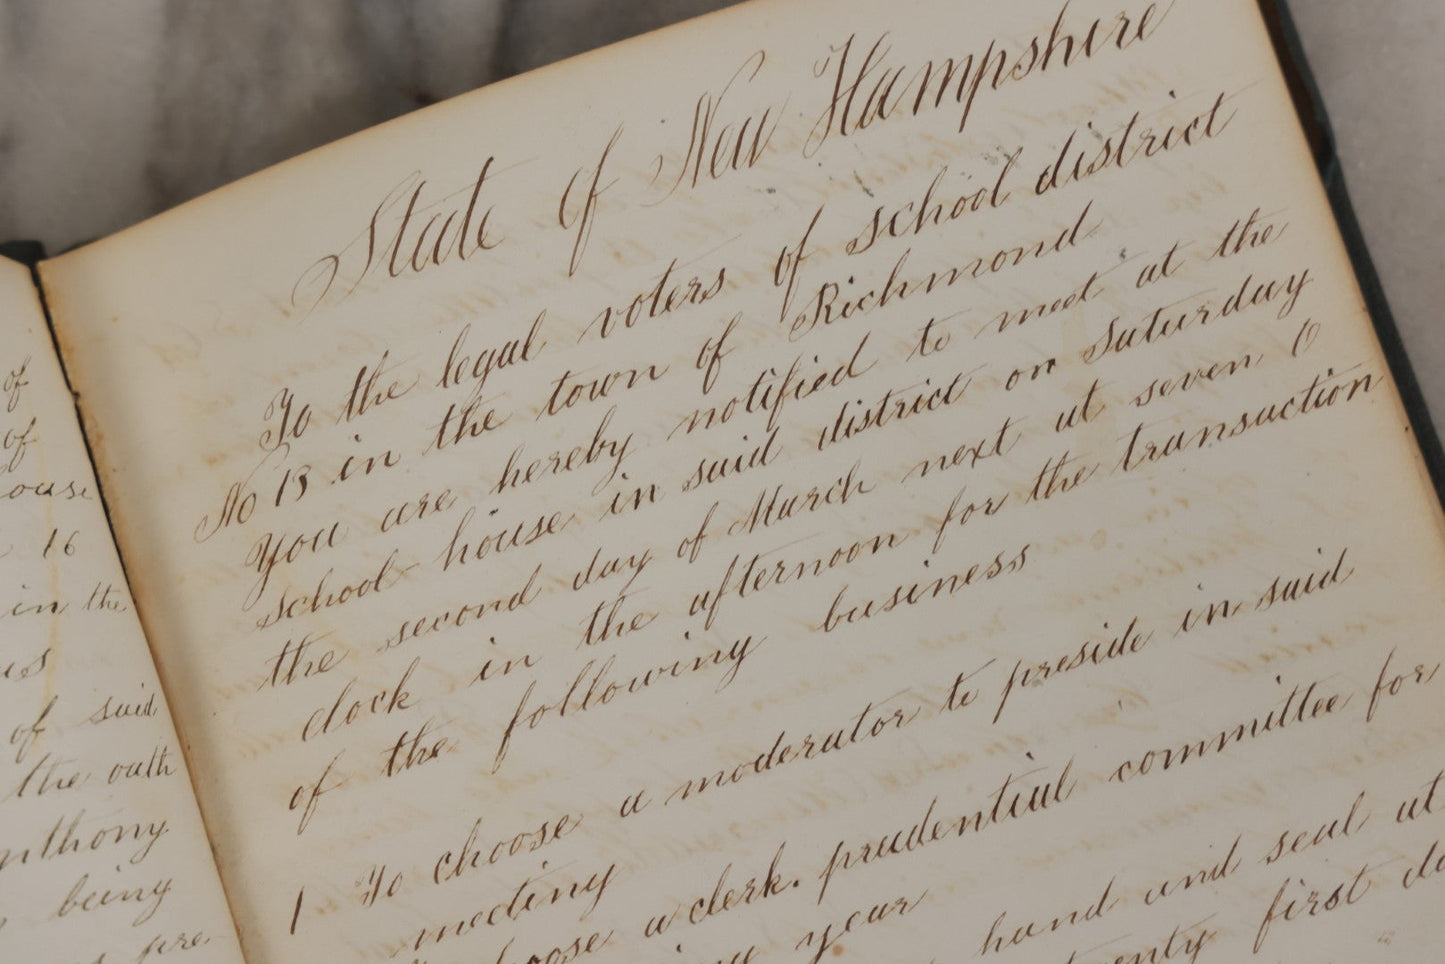 of
of
ouse
16
in the
us
of said
the oath
nthony
being
pre
State of New Hampshire
To the legal voters of school district
No 13 in the town of Richmond
You are hereby notified to meet at the
school house in said district on Saturday
the second day of March next at seven O
clock in the afternoon for the transaction
of the following business
1 To choose a moderator to preside in said
meeting
oose a clerk. prudential committee for
year
hand and seal at
enty first da